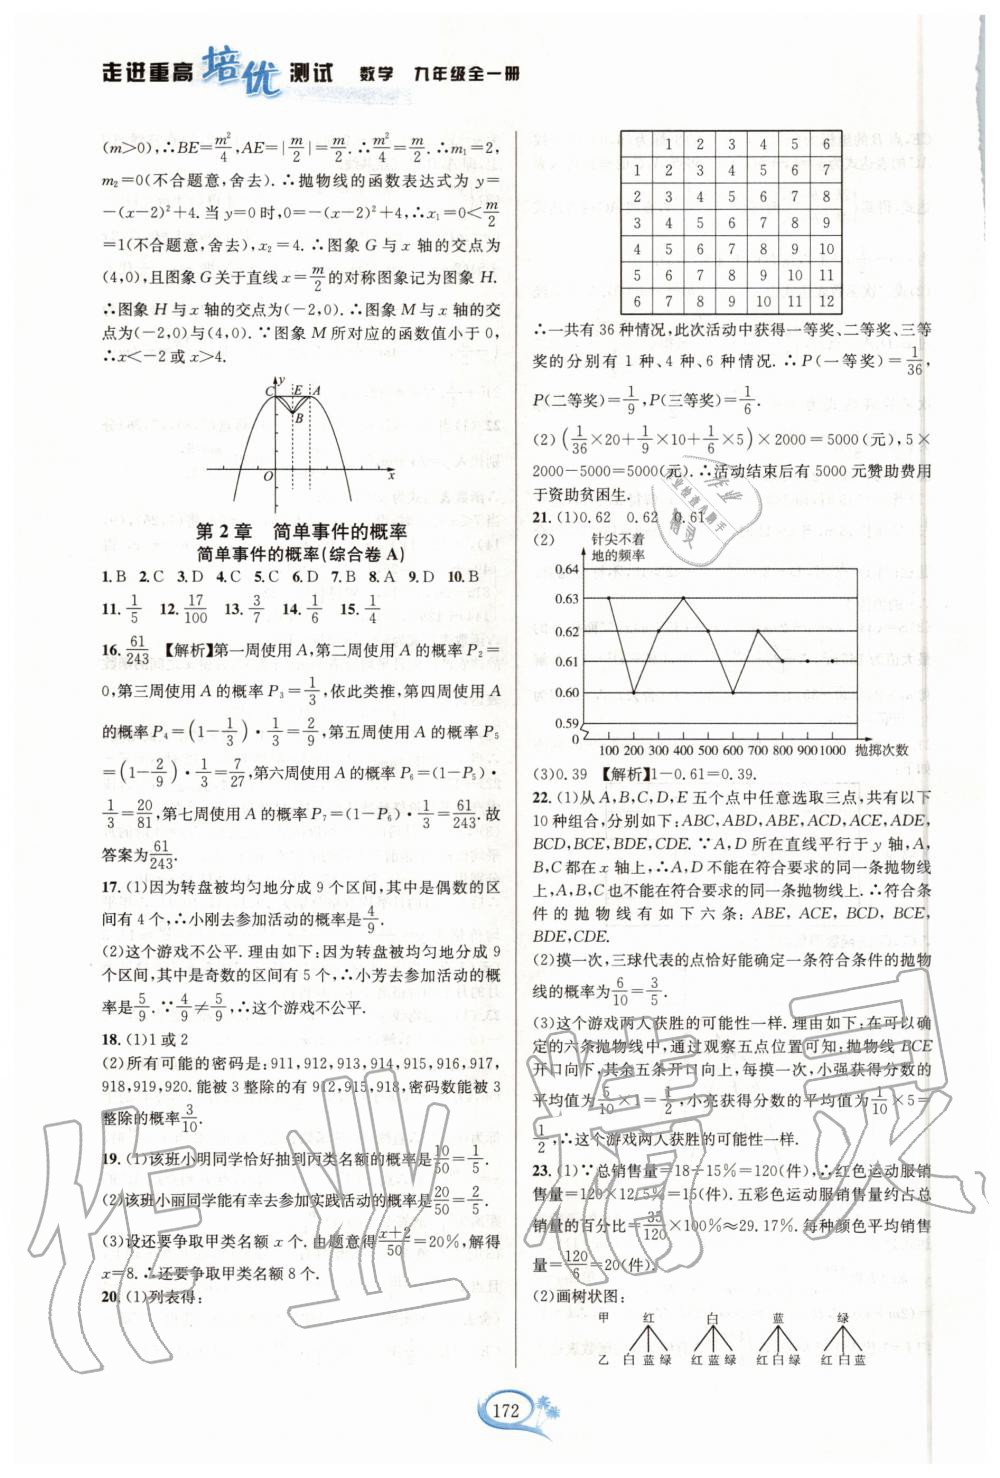 走进重高培优测试 数学 九年级全一册
(m>0),∴BE=m²/4,AE=|m/2|=m/2.∴m²/4=m/2.∴m₁=2,
m₂=0(不合题意,舍去).∴抛物线的函数表达式为 y=
-(x-2)²+4.当 y=0 时,0=-(x-2)²+4,∴x₁=0<m/2
=1(不合题意,舍去),x₂=4.∴图象 G 与 x 轴的交点为
(4,0),且图象 G 关于直线 x=m/2的对称图象记为图象 H.
∴图象 H 与 x 轴的交点为(-2,0).∴图象 M 与 x 轴的交
点为(-2,0)与(4,0).∵图象 M 所对应的函数值小于 0,
∴x<-2 或 x>4.
y
C E A
B
O x
第 2 章 简单事件的概率
简单事件的概率(综合卷 A)
1. B 2. C 3. D 4. C 5. C 6. D 7. B 8. A 9. D 10. B
11. 1/5 12. 17/100 13. 3/7 14. 1/6 15. 1/4
16. 61/243 【解析】第一周使用 A,第二周使用 A 的概率 P₂=
0,第三周使用 A 的概率 P₃=1/3,依此类推,第四周使用 A
的概率 P₄=(1-1/3)·1/3=2/9,第五周使用 A 的概率 P₅
=(1-2/9)·1/3=7/27,第六周使用 A 的概率 P₆=(1-P₅)·
1/3=20/81,第七周使用 A 的概率 P₇=(1-P₆)·1/3=61/243.故
答案为61/243.
17. (1)因为转盘被均匀地分成 9 个区间,其中是偶数的区
间有 4 个,∴小刚去参加活动的概率是4/9.
(2)这个游戏不公平.理由如下:因为转盘被均匀地分成 9
个区间,其中是奇数的区间有 5 个,∴小芳去参加活动的概
率是5/9.∵4/9≠5/9,∴这个游戏不公平.
18. (1)1 或 2
(2)所有可能的密码是:911,912,913,914,915,916,917,
918,919,920.能被 3 整除的有 912,915,918,密码数能被 3
整除的概率3/10.
19. (1)该班小明同学恰好抽到丙类名额的概率是10/50=1/5.
(2)该班小丽同学能有幸去参加实践活动的概率是20/50=2/5.
(3)设还要争取甲类名额 x 个.由题意得(x+2)/50=20%,解得
x=8.∴还要争取甲类名额 8 个.
20. (1)列表得:
1 2 3 4 5 6
1 2 3 4 5 6 7
2 3 4 5 6 7 8
3 4 5 6 7 8 9
4 5 6 7 8 9 10
5 6 7 8 9 10 11
6 7 8 9 10 11 12
∴一共有 36 种情况,此次活动中获得一等奖、二等奖、三等
奖的分别有 1 种、4 种、6 种情况.∴P(一等奖)=1/36,
P(二等奖)=1/9,P(三等奖)=1/6.
(2)(1/36×20+1/9×10+1/6×5)×2000=5000(元),5×
2000-5000=5000(元).∴活动结束后有 5000 元赞助费用
于资助贫困生.
21. (1)0.62 0.62 0.61
(2) 针尖不着
地的频率
0.64
0.63
0.62
0.61
0.60
0.59
0
100 200 300 400 500 600 700 800 900 1000 抛掷次数
(3)0.39 【解析】1-0.61=0.39.
22. (1)从 A,B,C,D,E 五个点中任意选取三点,共有以下
10 种组合,分别如下:ABC,ABD,ABE,ACD,ACE,ADE,
BCD,BCE,BDE,CDE.∵A,D 所在直线平行于 y 轴,A,
B,C 都在 x 轴上,∴A,D 不能在符合要求的同一条抛物线
上,A,B,C 也不能在符合要求的同一条抛物线上.∴符合条
件的抛物线有如下六条:ABE,ACE,BCD,BCE,
BDE,CDE.
(2)摸一次,三球代表的点恰好能确定一条符合条件的抛物
线的概率为6/10=3/5.
(3)这个游戏两人获胜的可能性一样.理由如下:在可以确
定的六条抛物线中,通过观察五点位置可知:抛物线 BCE
开口向下,其余五条开口向上,每摸一次,小强获得分数的
平均值为5/10×1=1/2,小亮获得分数的平均值为1/10×5=
1/2,∴这个游戏两人获胜的可能性一样.
23. (1)∵总销售量=18÷15%=120(件),∴红色运动服销
售量=120×12.5%=15(件).五彩色运动服销售量约占总
销售量的百分比=35/120×100%≈29.17%.每种颜色平均销售
量=120/6=20(件).
(2)画树状图:
甲 红 白 蓝 绿
乙 白 蓝 绿 红 蓝 绿 红 白 绿 红 白 蓝
172
作业精灵